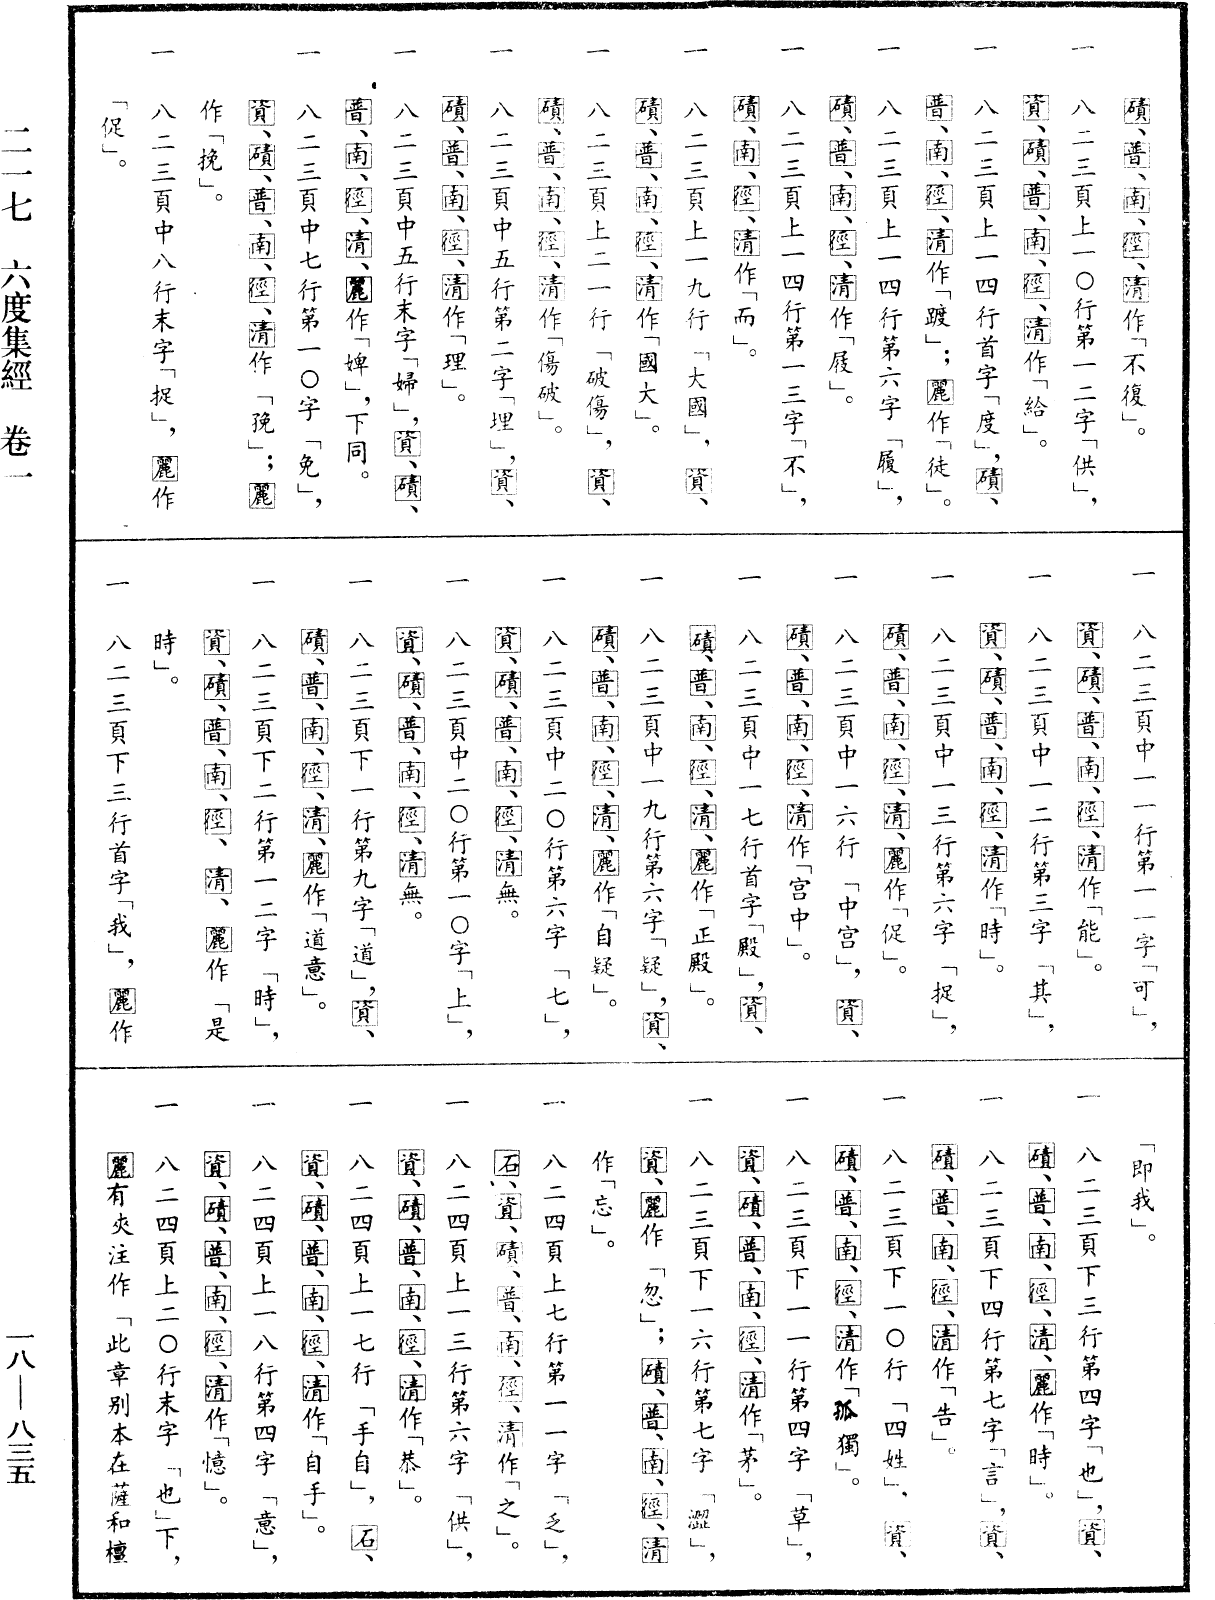 二一七　六度集經　卷一
磧、普、南、徑、清作「不復」。
一　八二三頁上一〇行第一二字「供」，
資、磧、普、南、徑、清作「給」。
一　八二三頁上一四行首字「度」，磧、
普、南、徑、清作「踱」；麗作「徒」。
一　八二三頁上一四行第六字「履」，
磧、普、南、徑、清作「屐」。
一　八二三頁上一四行第一三字「不」，
磧、南、徑、清作「而」。
一　八二三頁上一九行「大國」，資、
磧、普、南、徑、清作「國大」。
一　八二三頁上二一行「破傷」，資、
磧、普、南、徑、清作「傷破」。
一　八二三頁中五行第二字「埋」，資、
磧、普、南、徑、清作「理」。
一　八二三頁中五行末字「婦」，資、磧、
普、南、徑、清、麗作「婢」，下同。
一　八二三頁中七行第一〇字「免」，
資、磧、普、南、徑、清作「㝃」；麗
作「挽」。
一　八二三頁中八行末字「捉」，麗作
「促」。
一　八二三頁中一一行第一一字「可」，
資、磧、普、南、徑、清作「能」。
一　八二三頁中一二行第三字「其」，
資、磧、普、南、徑、清作「時」。
一　八二三頁中一三行第六字「捉」，
磧、普、南、徑、清、麗作「促」。
一　八二三頁中一六行「中宮」，資、
磧、普、南、徑、清作「宮中」。
一　八二三頁中一七行首字「殿」，資、
磧、普、南、徑、清、麗作「正殿」。
一　八二三頁中一九行第六字「疑」，資、
磧、普、南、徑、清、麗作「自疑」。
一　八二三頁中二〇行第六字「七」，
資、磧、普、南、徑、清無。
一　八二三頁中二〇行第一〇字「上」，
資、磧、普、南、徑、清無。
一　八二三頁下一行第九字「道」，資、
磧、普、南、徑、清、麗作「道意」。
一　八二三頁下二行第一二字「時」，
資、磧、普、南、徑、清、麗作「是
時」。
一　八二三頁下三行首字「我」，麗作
「即我」。
一　八二三頁下三行第四字「也」，資、
磧、普、南、徑、清、麗作「時」。
一　八二三頁下四行第七字「言」，資、
磧、普、南、徑、清作「告」。
一　八二三頁下一〇行「四姓」，資、
磧、普、南、徑、清作「孤獨」。
一　八二三頁下一一行第四字「草」，
資、磧、普、南、徑、清作「茅」。
一　八二三頁下一六行第七字「澀」，
資、麗作「忽」；磧、普、南、徑、清
作「忘」。
一　八二四頁上七行第一一字「乏」，
石、資、磧、普、南、徑、清作「之」。
一　八二四頁上一三行第六字「供」，
資、磧、普、南、徑、清作「恭」。
一　八二四頁上一七行「手自」，石、
資、磧、普、南、徑、清作「自手」。
一　八二四頁上一八行第四字「意」，
資、磧、普、南、徑、清作「憶」。
一　八二四頁上二〇行末字「也」下，
麗有夾注作「此章別本在薩和檀
一八—八三五